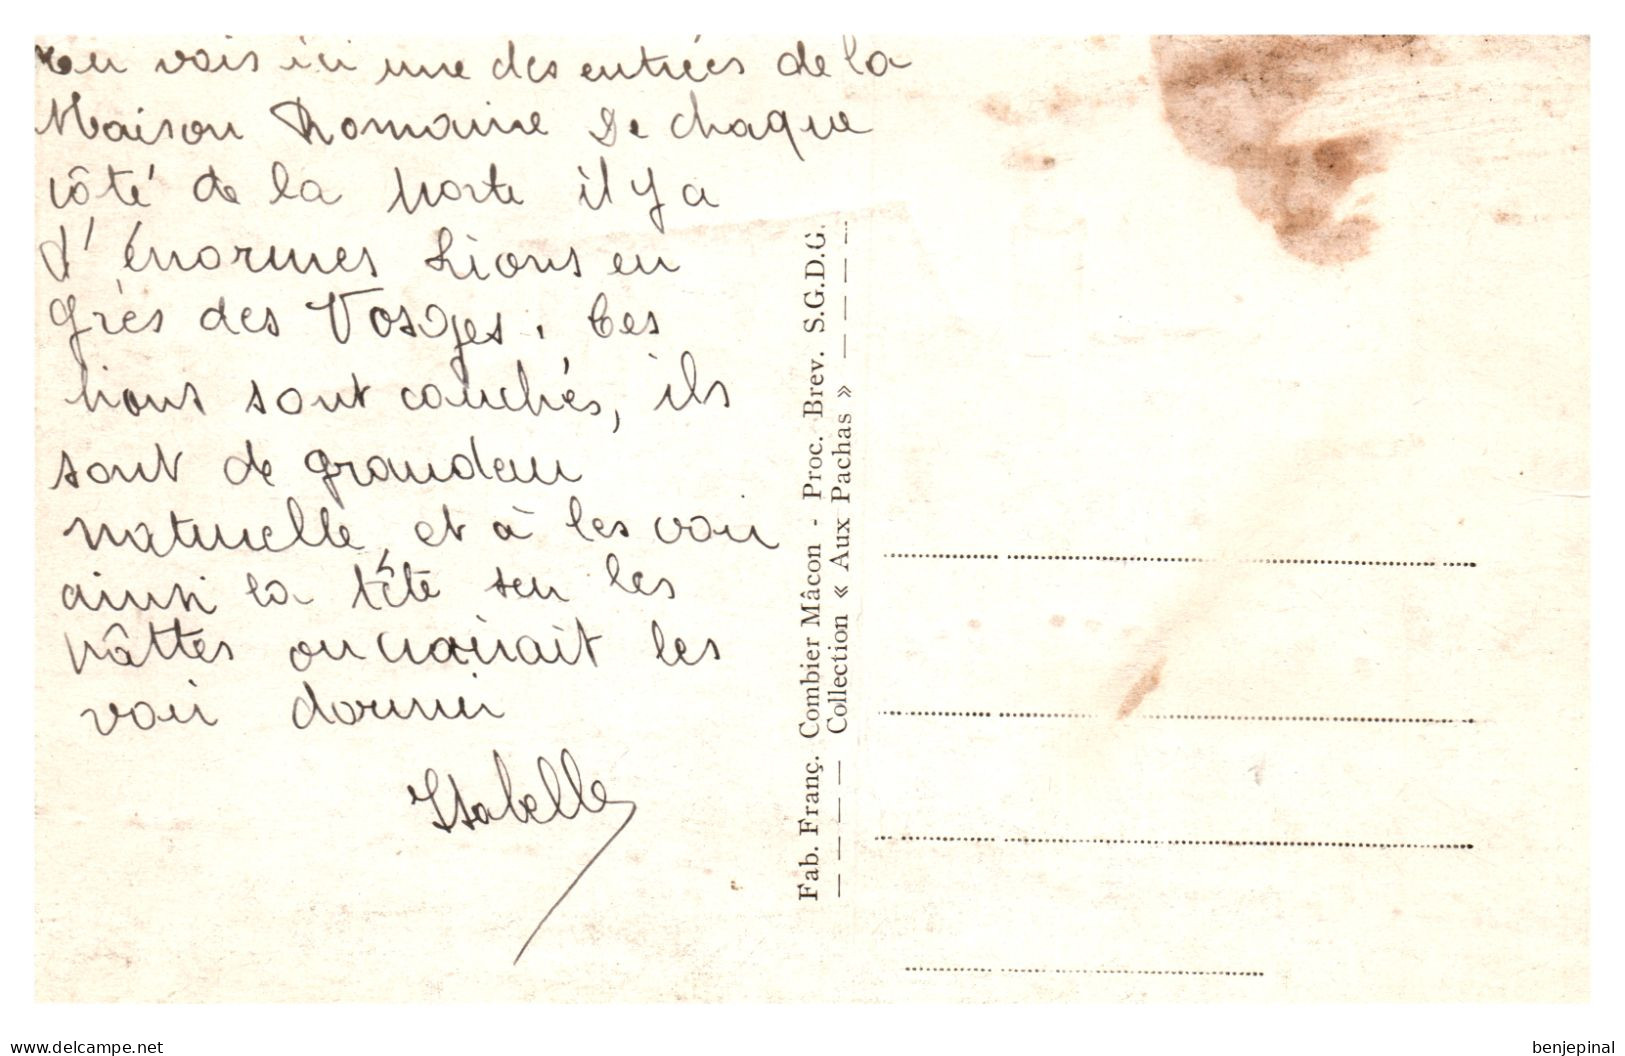 Tu vois ici une des entrées de la
Maison Romaine De chaque
côté de la porte il y a
d'énormes Lions en
grès des Vosges. Ces
lions sont couchés, ils
sont de grandeur
naturelle, et à les voir
ainsi la tête sur les
pâttes on croirait les
voir dormir
Isabelle
Fab. Franç. Combier Mâcon - Proc. Brev. S.G.D.G.
— — — — Collection « Aux Pachas » — — — —
www.delcampe.net
benjepinal